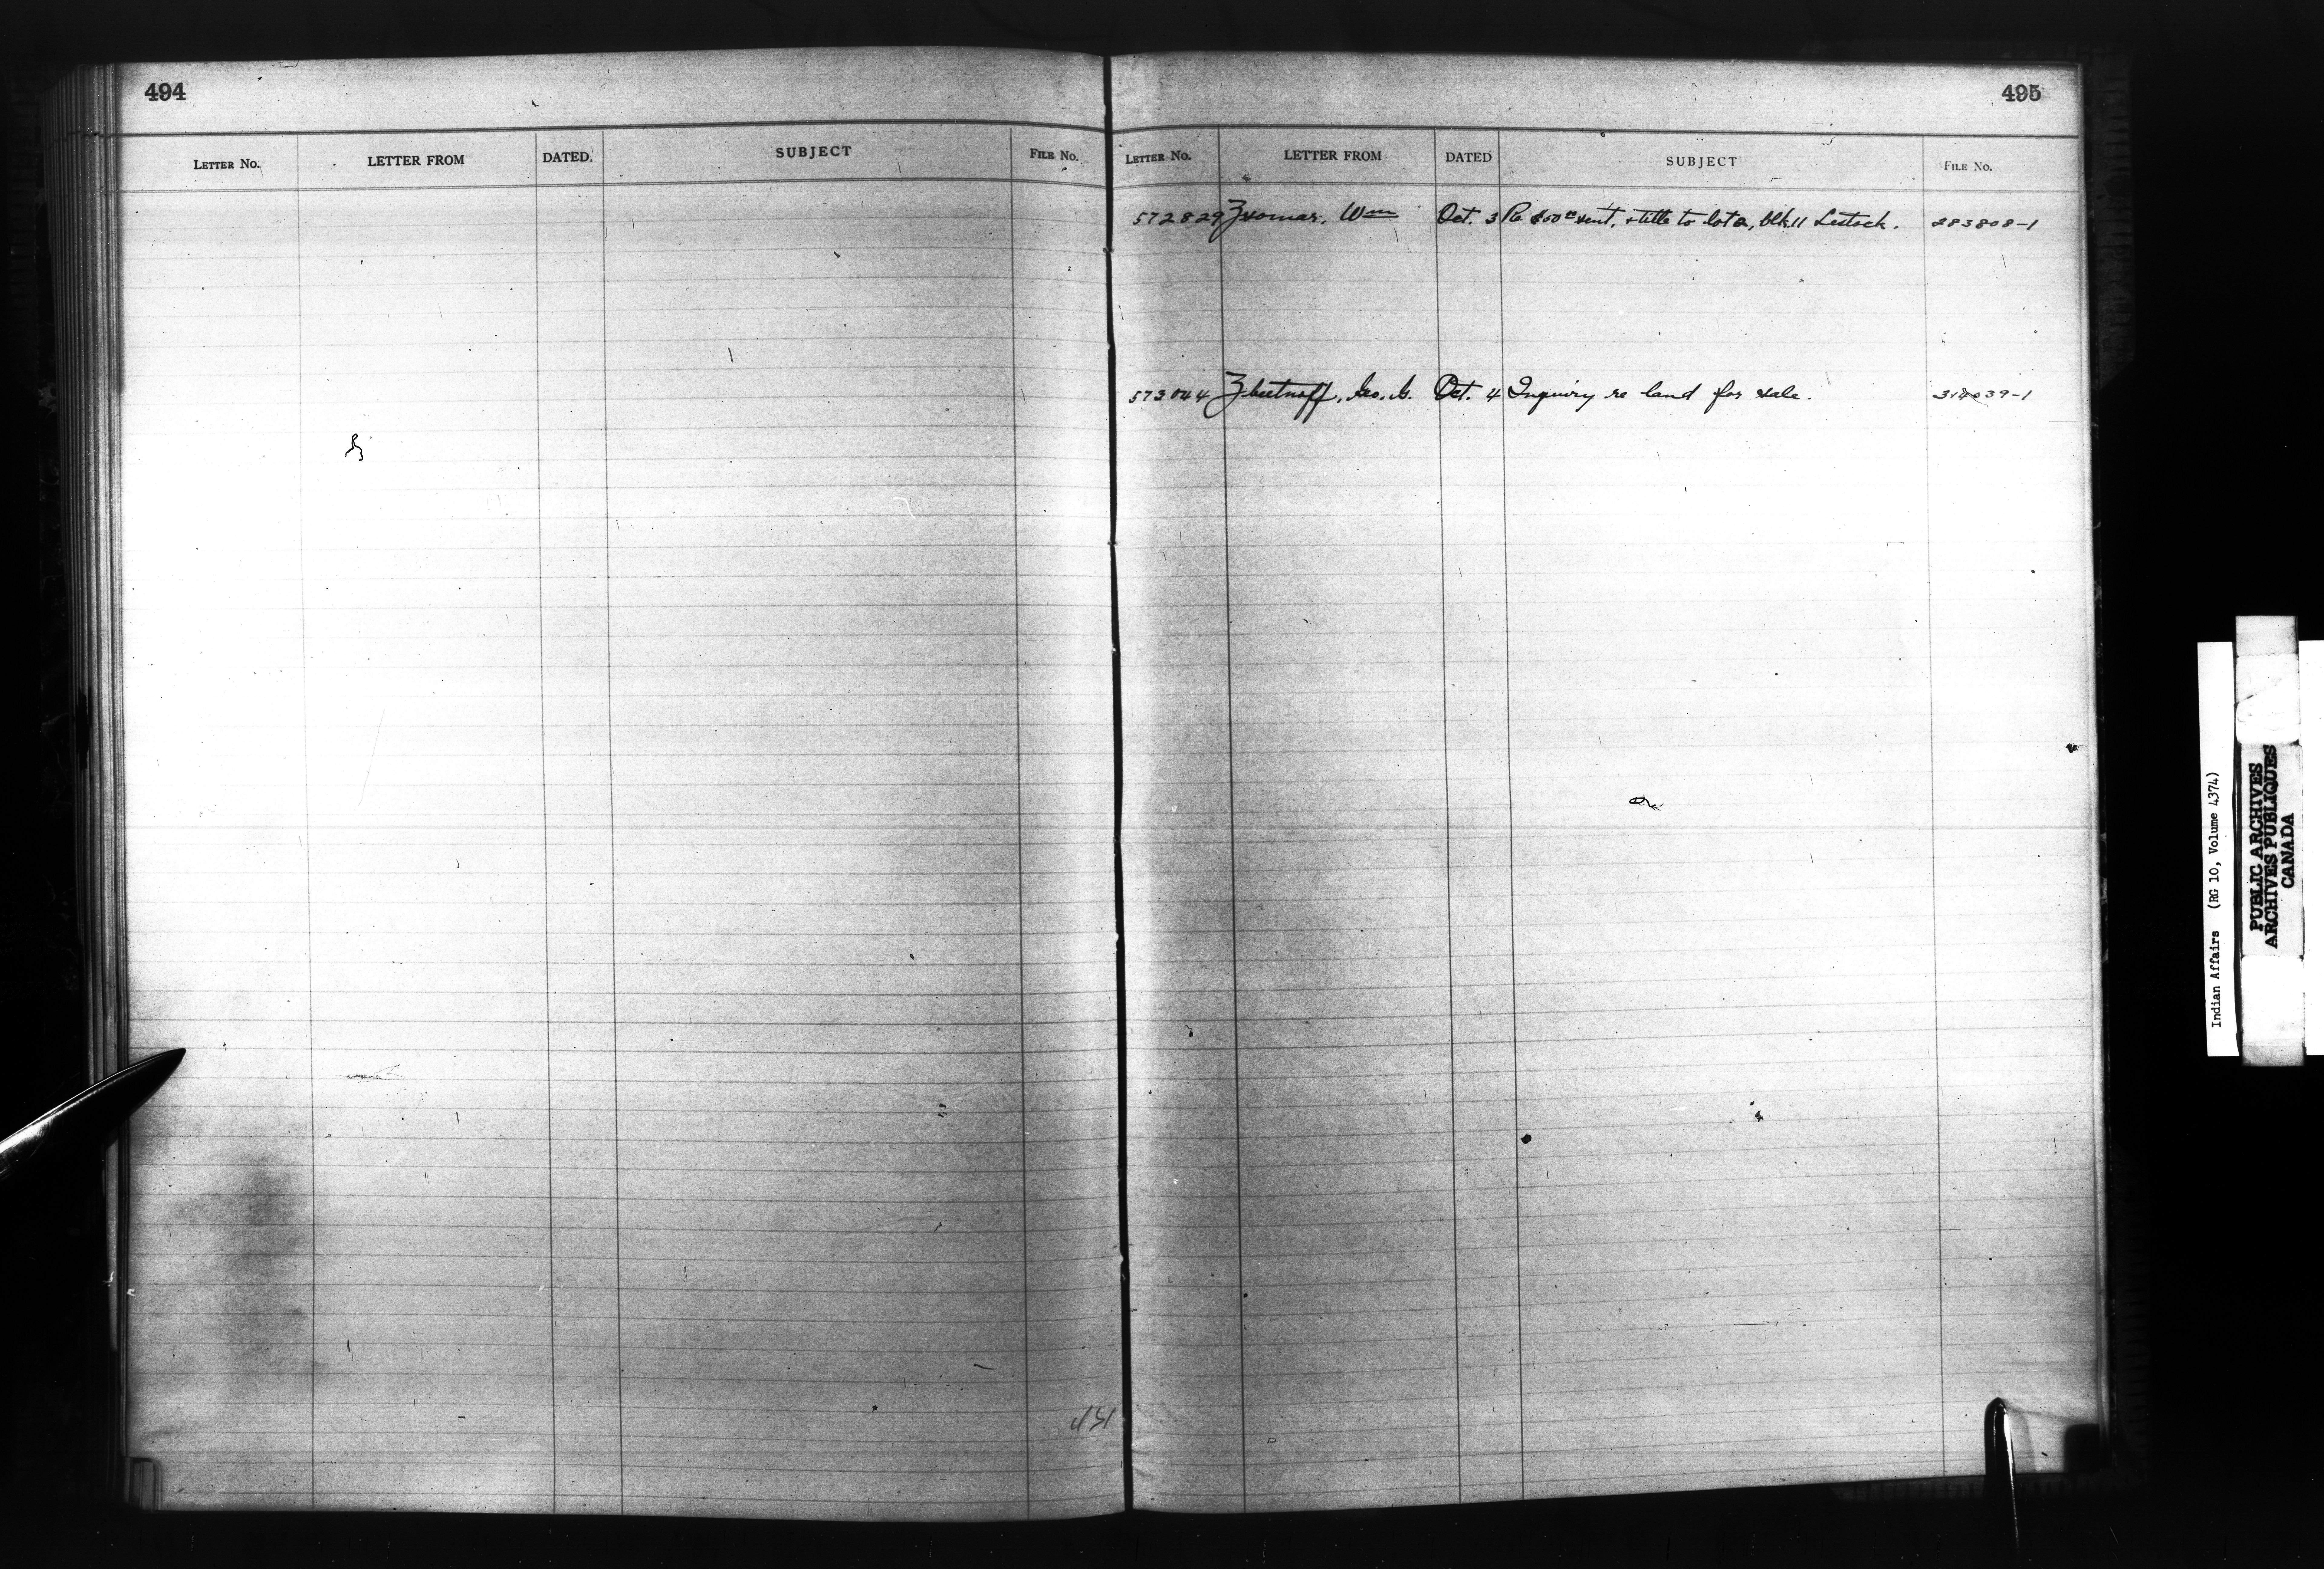 494
LETTER NO. LETTER FROM DATED. SUBJECT FILE NO.
495
LETTER NO. LETTER FROM DATED SUBJECT FILE NO.
572829 Wm Oct. 3 Re sent, + title to lot 2, blk 11 Lestock. 283808-1
573044 Geo. G. Oct. 4 Inquiry re land for sale. 314039-1
Indian Affairs (RG 10, Volume 4374)
PUBLIC ARCHIVES
ARCHIVES PUBLIQUES
CANADA